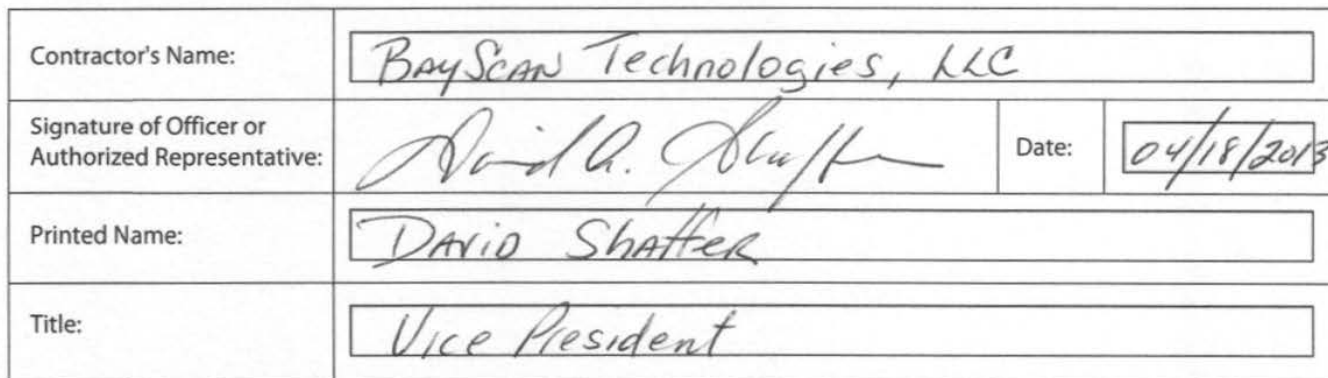 Contractor's Name: BayScan Technologies, LLC
Signature of Officer or
Authorized Representative: David A. Shaffer Date: 04/18/2013
Printed Name: David Shaffer
Title: Vice President